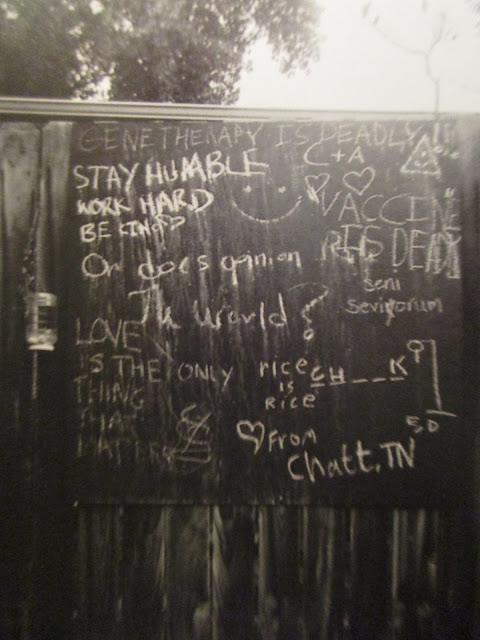 GENETHERAPY IS DEADLY!!
C+A
STAY HUMBLE
WORK HARD
BE KIND
VACCINE
IS DEADLY
On does opinion
World?
seni
seviyorum
LOVE
IS THE ONLY
THING
THAT
MATTERS
rice
IS
RICE
CH___K
E,D
FROM
Chatt, TN